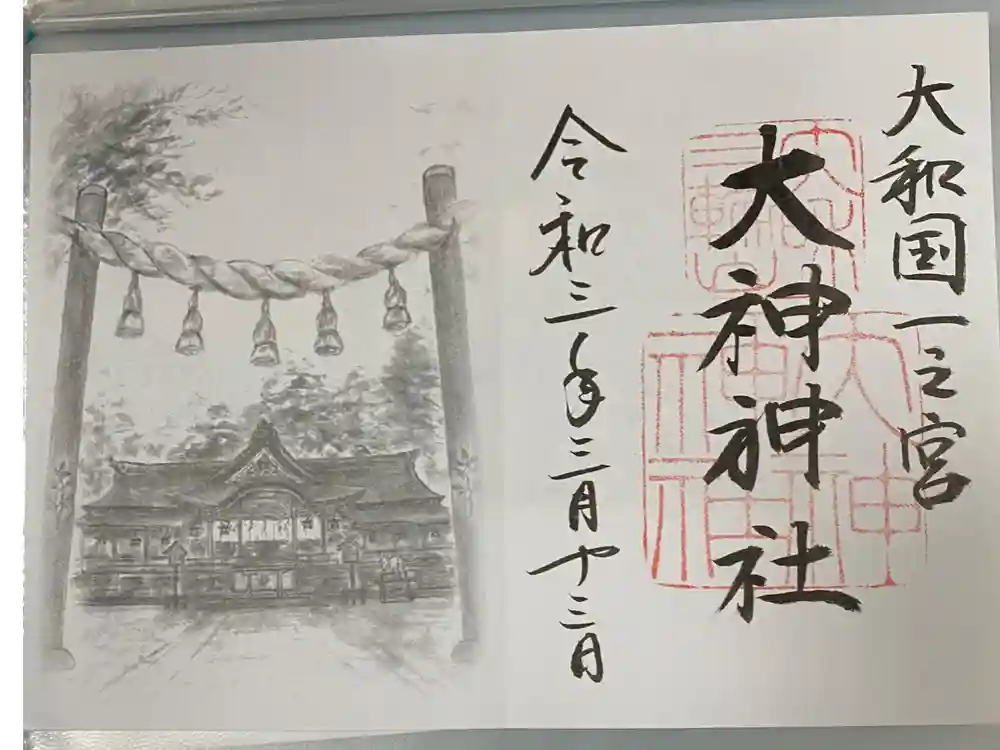 大和国一之宮
大神神社
令和三年三月十三日
三輪
大神
神社